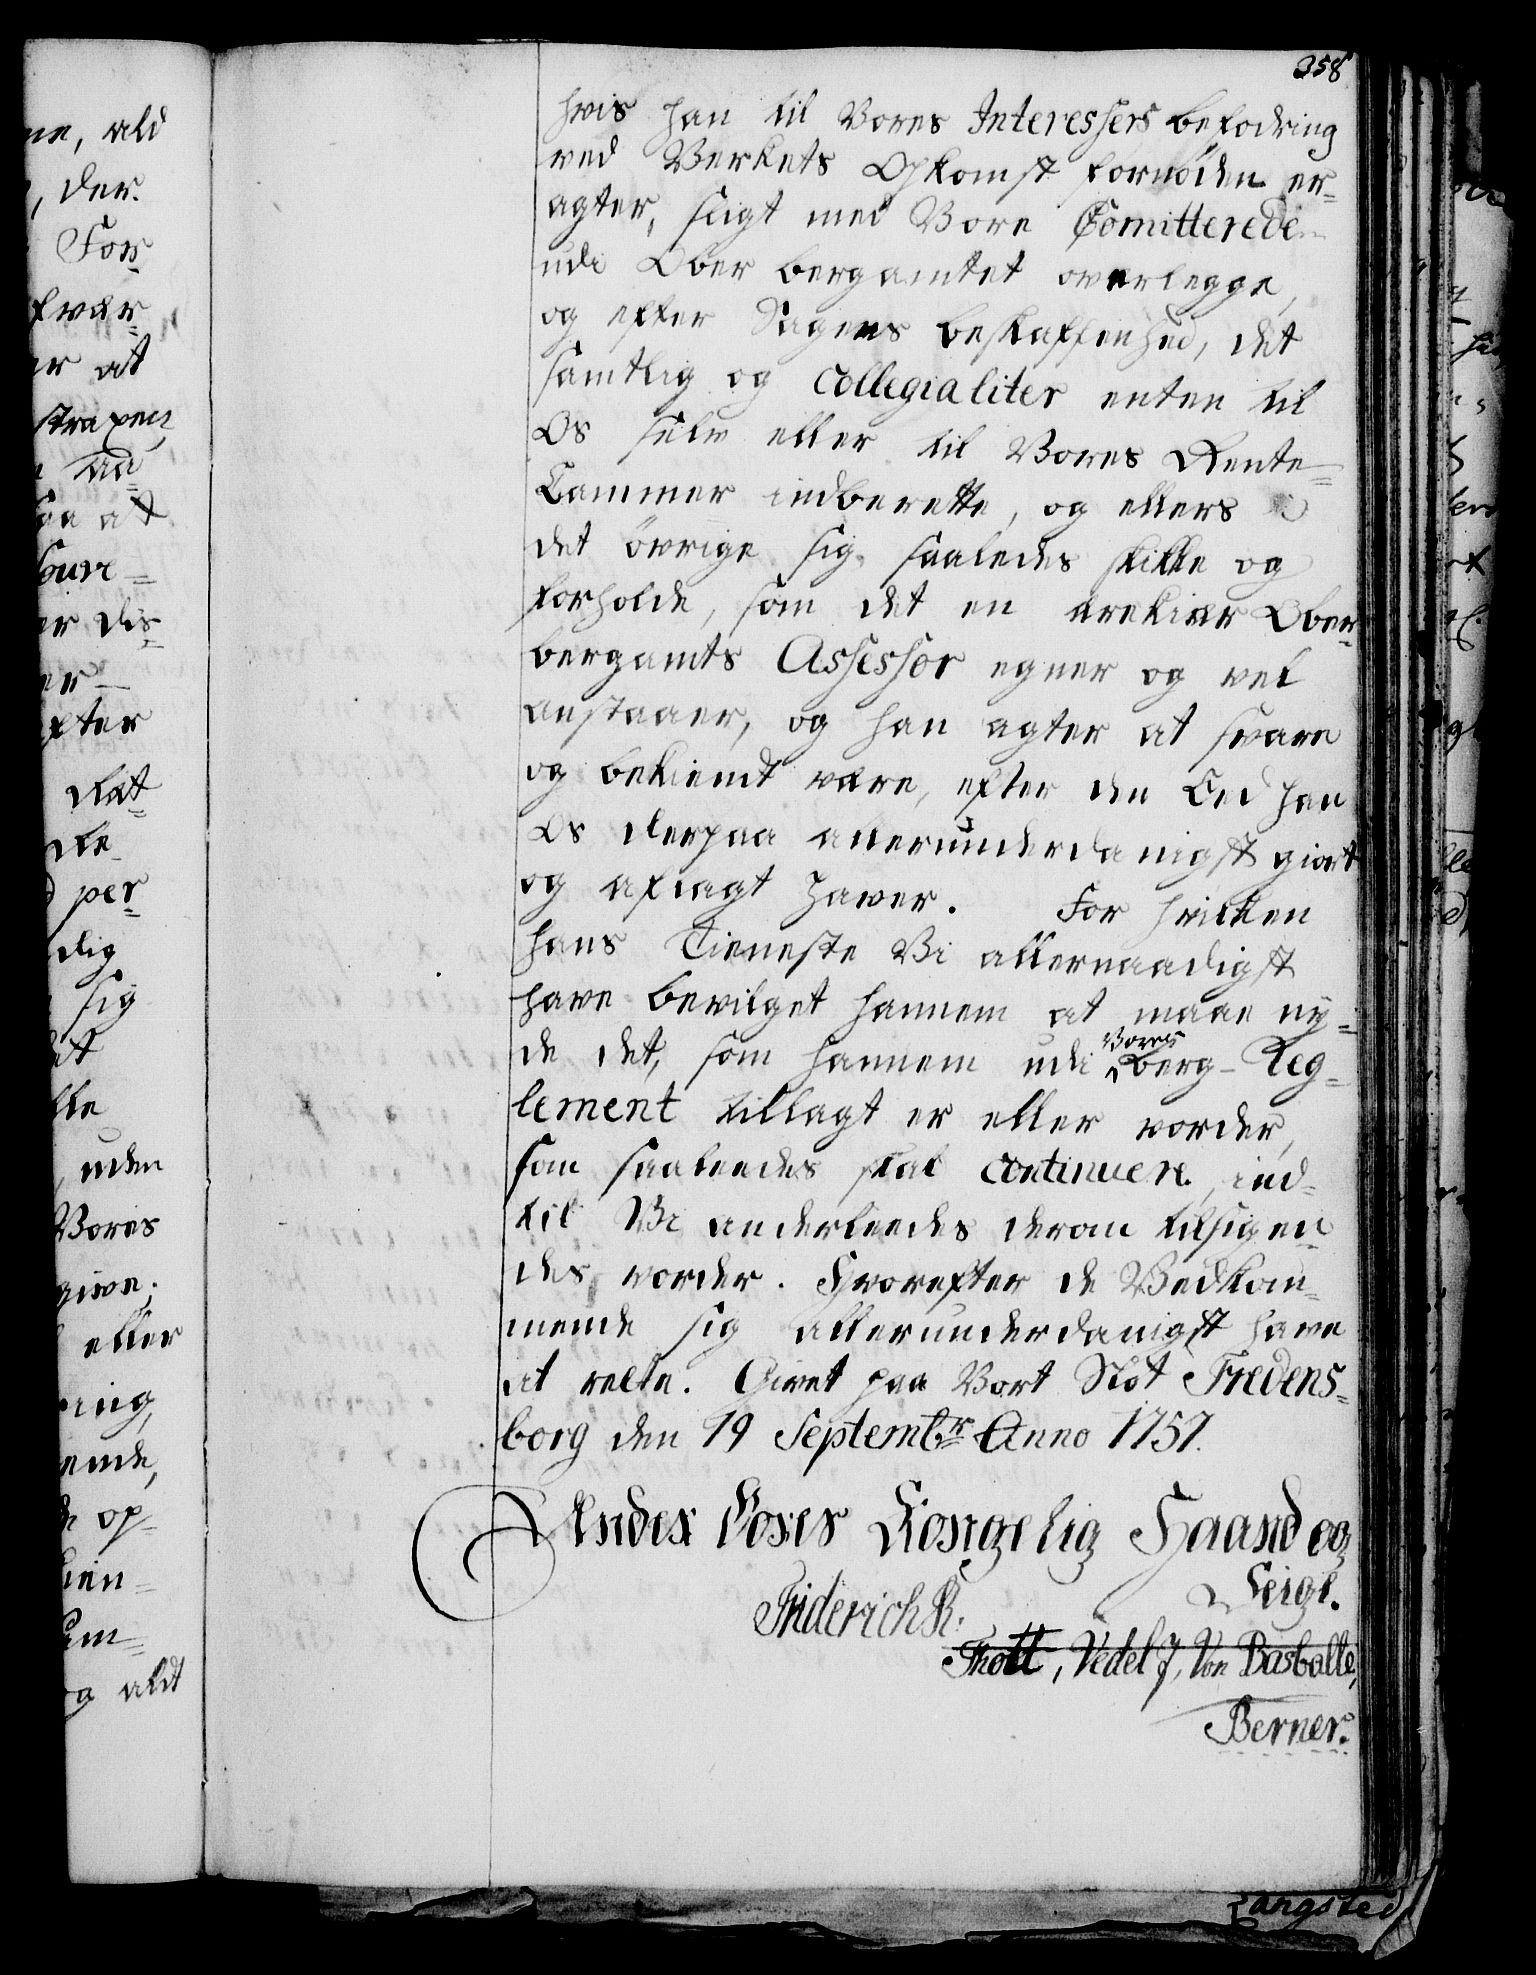 358
hvis han til Vores Interessers befodring
ved Verkets Opkomst fornöden er-
agter, sligt med Vore Comitterede
udi Ober bergamtet overlegge,
og efter Sagens beskaffenhed, det
samtlig og collegialiter enten til
Os selv eller til Vores Rente-
Cammer indberette, og ellers i
det övrige sig saaledes skikke og
forholde, som det en ærekiær Ober-
bergamts Assessor egner og vel
anstaaer, og han agter at svare
og bekiendt være, efter den Eed han
Os derpaa allerunderdanigst giort
og aflagt haver. For hvilken
hans Tieneste Vi allernaadigst
have bevilget hannem at maae ny-
de det, som hannem udi Vores berg-Reg-
lement tillagt er eller vorder,
som saaleedes skal continuere, ind-
til Vi anderleedes derom tilsigen-
des vorder. Hvorefter de Vedkom-
mende sig allerunderdanigst have
at rette. Givet paa Vort Slot Fredens-
borg den 19 Septembr Anno 1757.
Under Vores Kongelig Haand og
Seigl.
Friderich R.
Thott, Vedel J, Von Basballe,
Berner.
ne, ald
, der.
For-
sver-
er at
strapen
at
er dis-
per-
dig
sig
uden
Vores
give;
eller
ring,
ende,
op-
aldt
Langsted